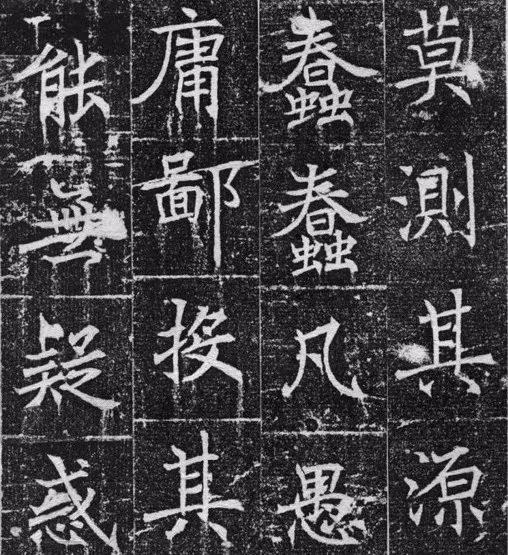 莫測其源
蠢蠢凡愚
庸鄙投其
能無疑惑